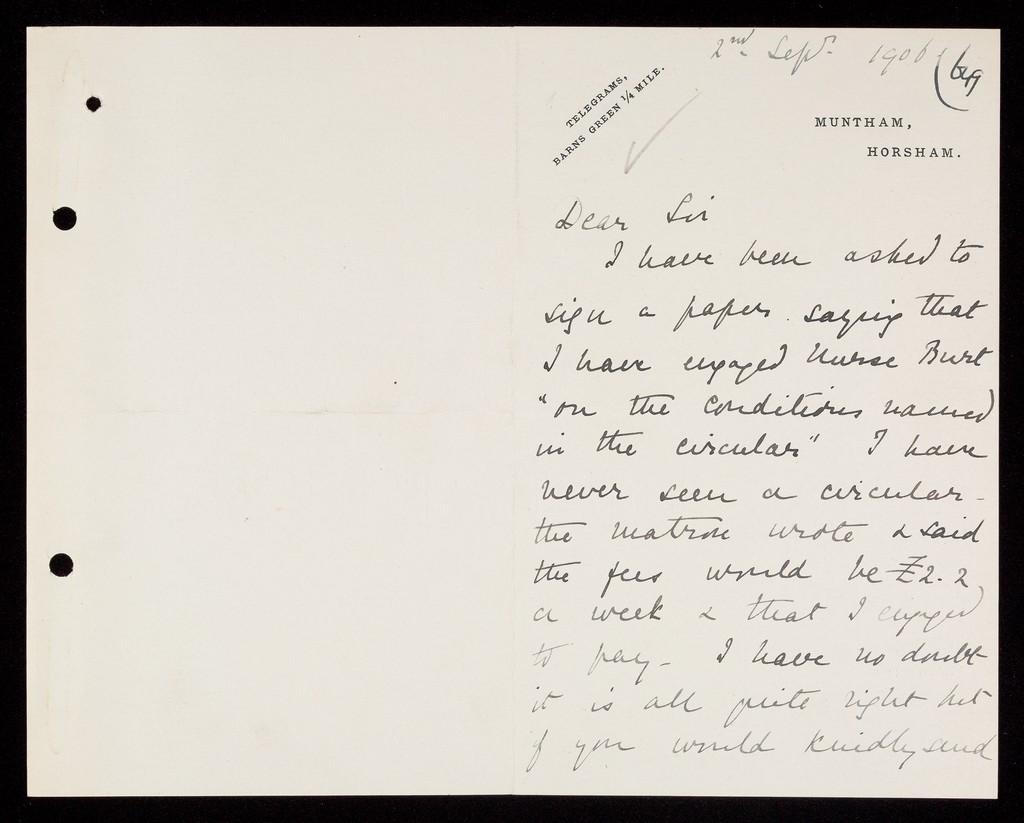 2nd Sept. 1906
(649
TELEGRAMS,
BARNS GREEN 1/4 MILE.
MUNTHAM,
HORSHAM.
Dear Sir
I have been asked to
sign a paper saying that
I have engaged Nurse Burt
"on the conditions named
in the circular" I have
never seen a circular -
the matron wrote & said
the fees would be £2.2
a week & that I engaged
to pay - I have no doubt
it is all quite right but
if you would kindly send